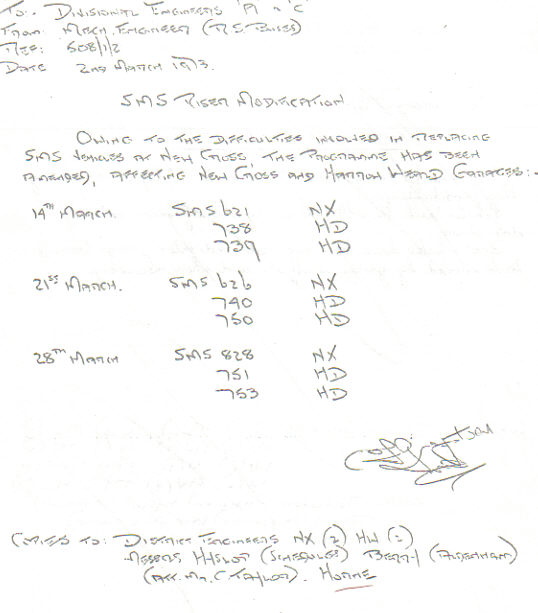 To:- Divisional Engineers 'A' & 'C'
From: Mech. Engineer (R.S. Buses)
Ref: 608/1/2
Date 2nd March 1973.
SMS Riser Modification
Owing to the difficulties involved in replacing
SMS vehicles at New Cross, the programme has been
amended, affecting New Cross and Harrow Weald Garages:-
14th March. SMS 621 NX
738 HD
739 HD
21st March. SMS 626 NX
740 HD
750 HD
28th March SMS 828 NX
751 HD
753 HD
Copies to: District Engineers NX (2) HW (2)
Messrs (Schedules) Berry (Aldenham)
(Att. Mr. C. Taylor). Horne